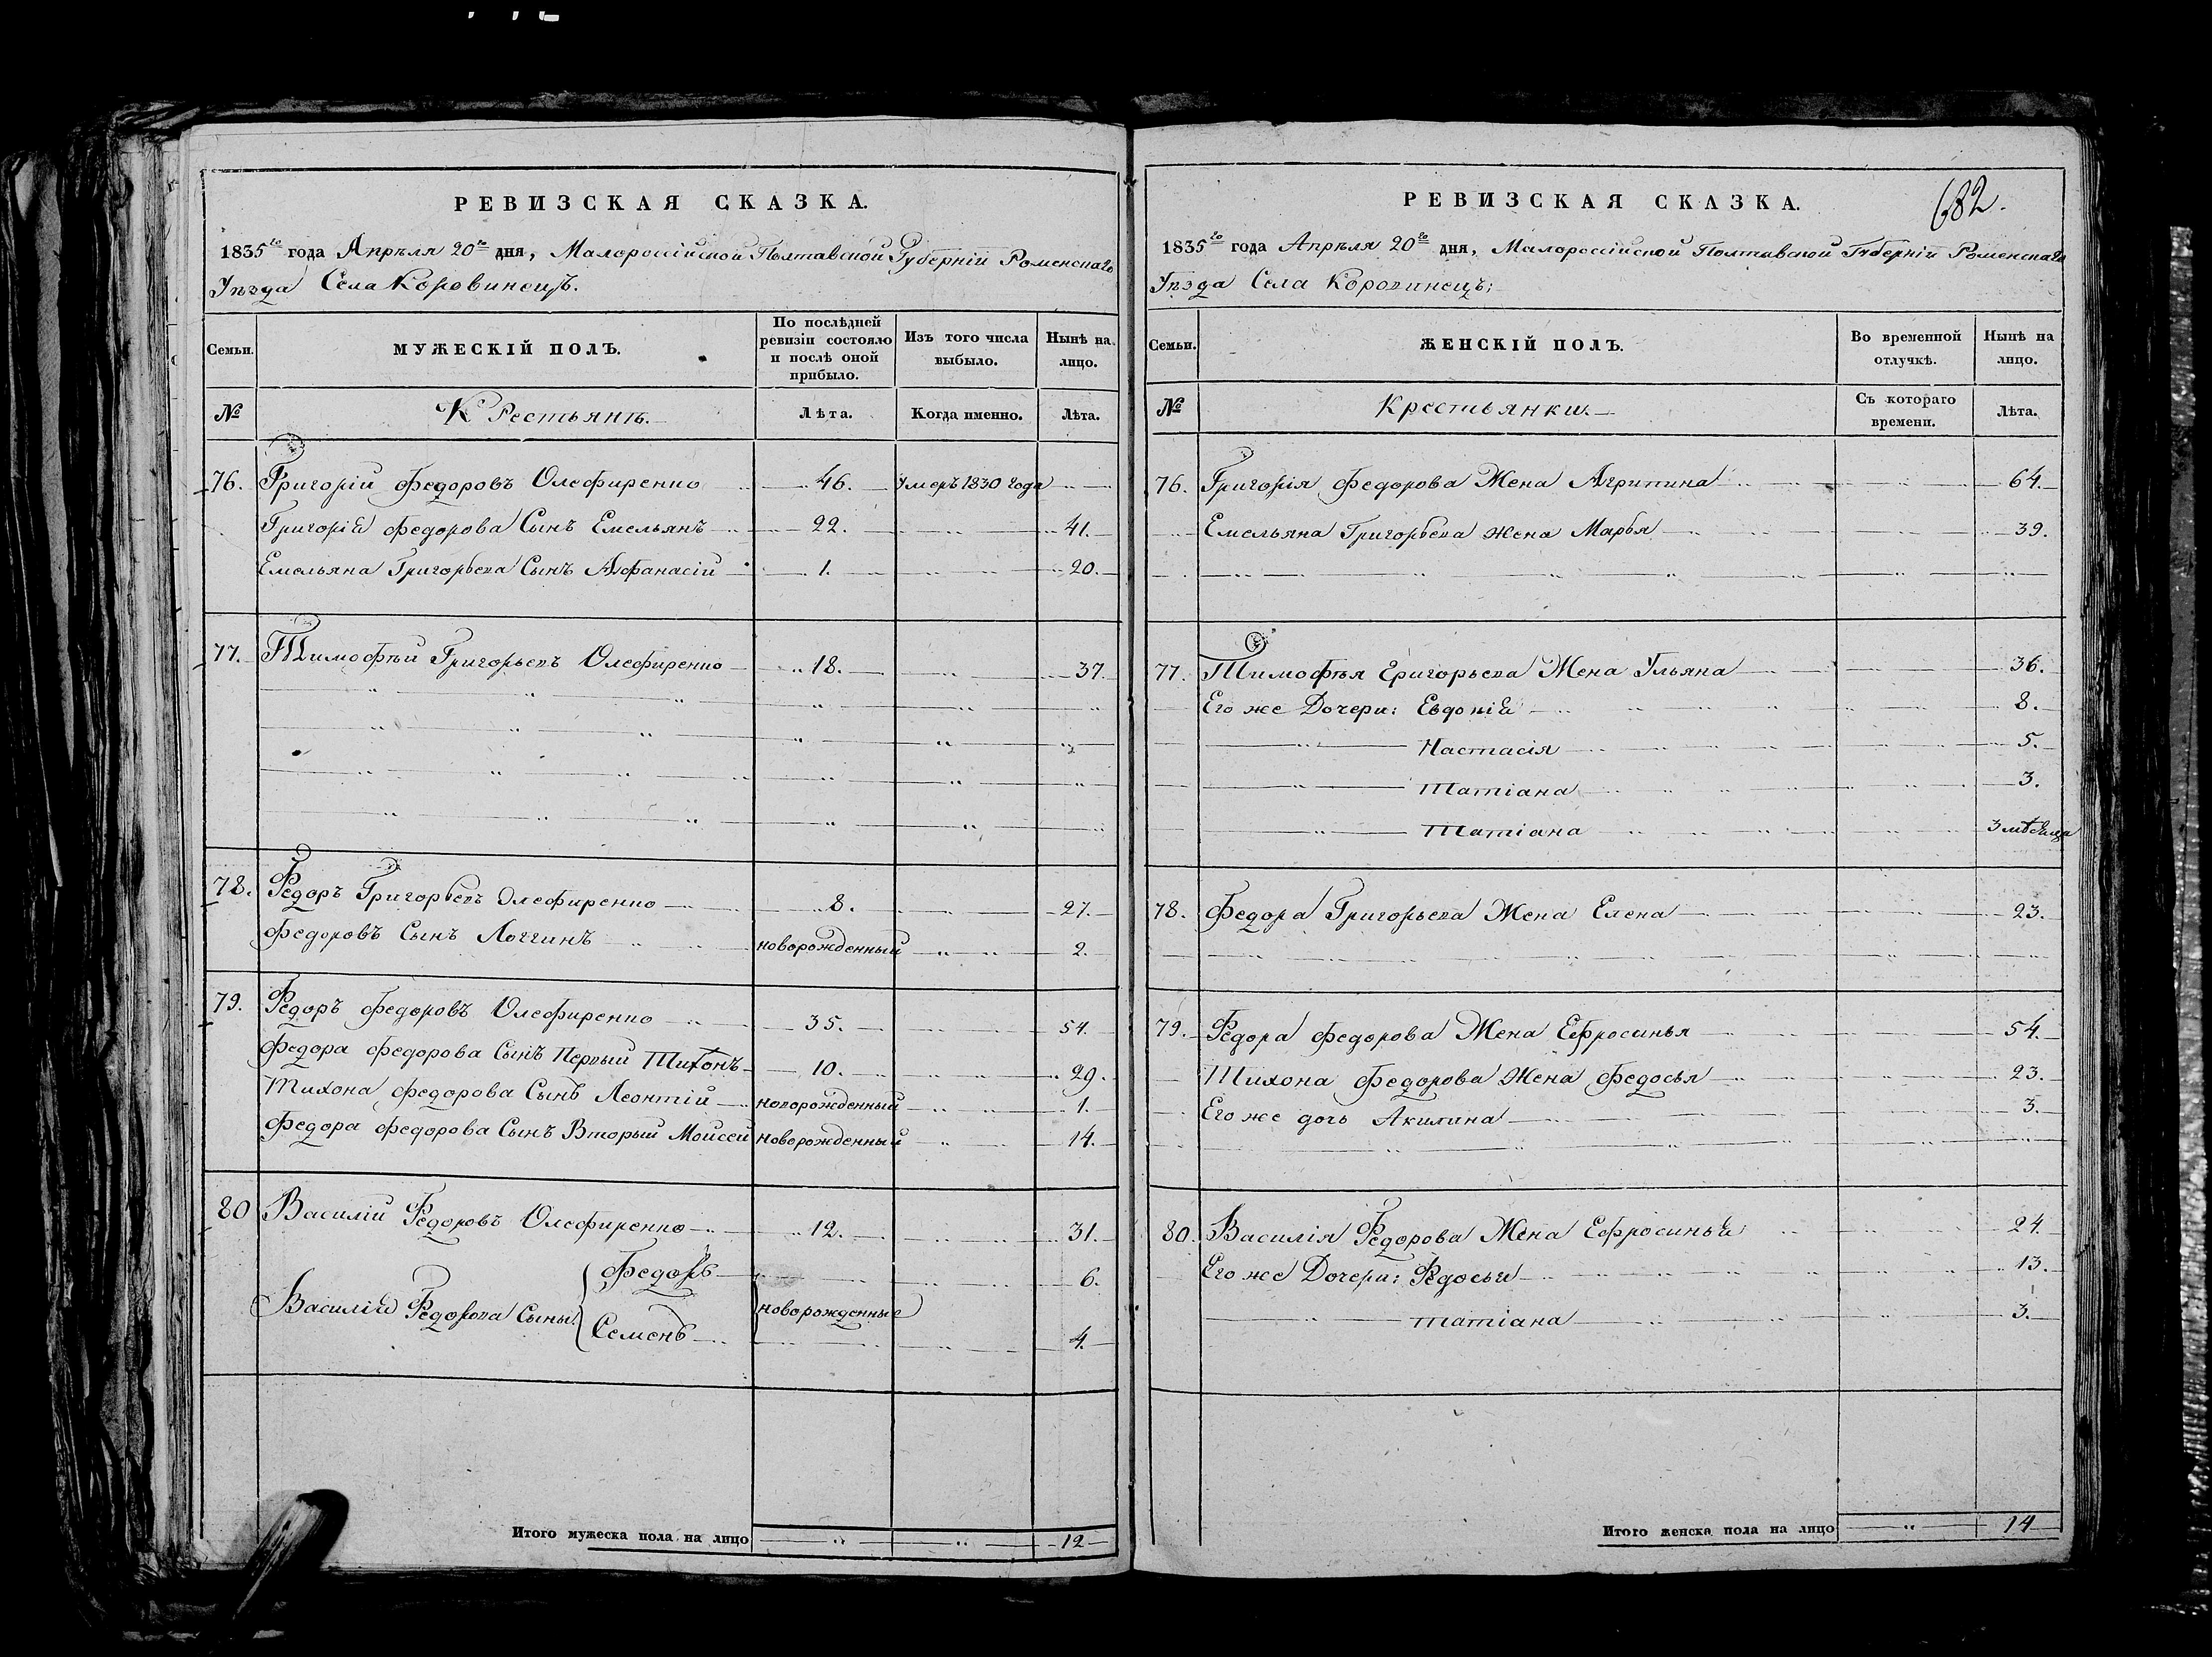 РЕВИЗСКАЯ СКАЗКА.
1835го года Апрѣля 20го дня, Малороссійской Полтавской Губерніи Роменскаго
Уѣзда Села Коровинецъ.
Семьи. МУЖЕСКІЙ ПОЛЪ. По послѣдней ревизіи состояло и послѣ оной прибыло. Изъ того числа выбыло. Нынѣ на лицо.
№ Крестьянъ. Лѣта. Когда именно. Лѣта.
76. Григорій Федоровъ Олефиренко 46. Умеръ 1830 года
Григорія Федорова Сынъ Емельянъ 22. 41.
Емельяна Григорьева Сынъ Афанасій 1. 20.
77. Тимофѣй Григорьевъ Олефиренко 18. 37.
78. Федоръ Григорьевъ Олефиренко 8. 27.
Федоровъ Сынъ Логгинъ новорожденный 2.
79. Федоръ Федоровъ Олефиренко 35. 54.
Федора Федорова Сынъ Первый Тихонъ 10. 29.
Тихона Федорова Сынъ Леонтій новорожденный 1.
Федора Федорова Сынъ Вторый Моисей новорожденный 14.
80 Василій Федоровъ Олефиренко 12. 31.
Федоръ 6.
Василія Федорова Сыны: новорожденные
Семенъ 4.
Итого мужеска пола на лицо 12
РЕВИЗСКАЯ СКАЗКА. 682.
1835го года Апрѣля 20го дня, Малороссійской Полтавской Губерніи Роменскаго
Уѣзда Села Коровинецъ;
Семьи. ЖЕНСКІЙ ПОЛЪ. Во временной отлучкѣ. Нынѣ на лицо.
№ Крестьянки. Съ котораго времени. Лѣта.
76. Григорія Федорова Жена Агрипина 64.
Емельяна Григорьева Жена Марья 39.
77. Тимофѣя Григорьева Жена Ульяна 36.
Его же Дочери: Евдокія 8.
Настасія 5.
Татіана 3.
Татіана 3 мѣсяца
78. Федора Григорьева Жена Елена 23.
79. Федора Федорова Жена Ефросинья 54.
Тихона Федорова Жена Федосья 23.
Его же дочь Акилина 3.
80. Василія Федорова Жена Ефросинья 24.
Его же Дочери: Федосья 13.
татіана 3.
Итого женска пола на лицо 14